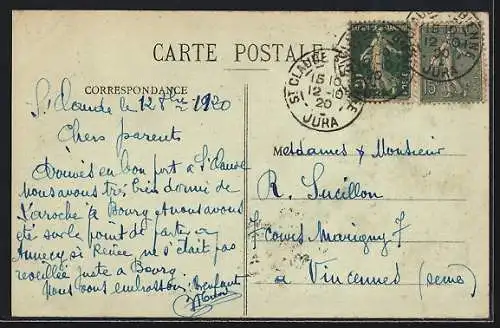 CARTE POSTALE
CORRESPONDANCE
St Claude le 12 8bre 1920
Chers parents
bon port à St Claude
nous avons très bien dormi de
Laroche à Bourg et nous avons
été sur le point de partir
Annecy si Renée ne s'était pas
reveillée juste à Bourg
Nous vous embrassons
Mesdames & Monsieur
R. Sucillon
7 cours Marigny 7
à Vincennes (Seine)
ST CLAUDE
15 10
12-10
20
JURA
15 10
12-10
20
JURA
15